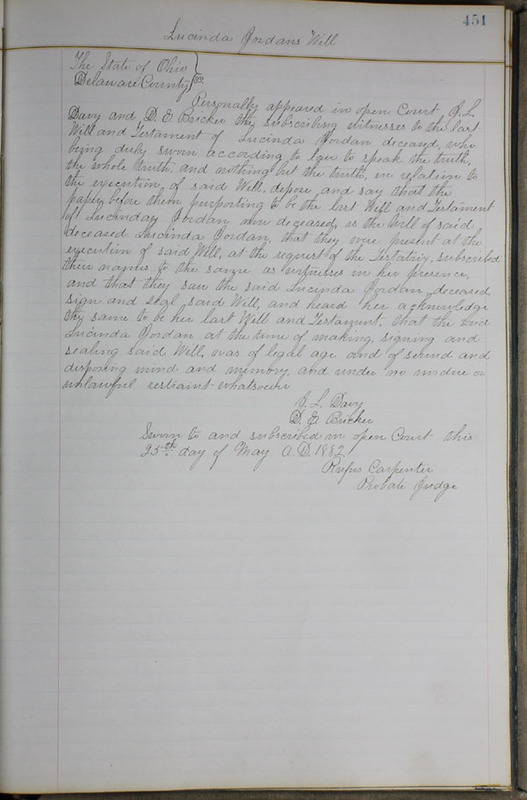 451
Lucinda Jordans Will
The State of Ohio
Delaware County SS.
Personally appeared in open Court
Davy and D. E. Bricker the subscribing witnesses to the last
Will and Testament of Lucinda Jordan deceased, who
being duly sworn according to Law to speak the truth,
the whole truth, and nothing but the truth, in relation to
the execution of said Will, depose and say that the
paper before them purporting to be the last Will and Testament
of Lucinda Jordan now deceased, is the Will of said
deceased Lucinda Jordan, that they were present at the
execution of said Will, at the request of the Testatrix, subscribed
their names to the same as witnesses in her presence,
and that they saw the said Lucinda Jordan deceased
sign and seal said Will, and heard her acknowledge
the same to be her last Will and Testament. that the said
Lucinda Jordan at the time of making, signing and
sealing said Will, was of legal age and of sound and
disposing mind and memory, and under no undue or
unlawful restraint whatsoever
L. Davy
D. E. Bricker
Sworn to and subscribed in open Court this
25th day of May A.D. 1882
Rufus Carpenter
Probate Judge